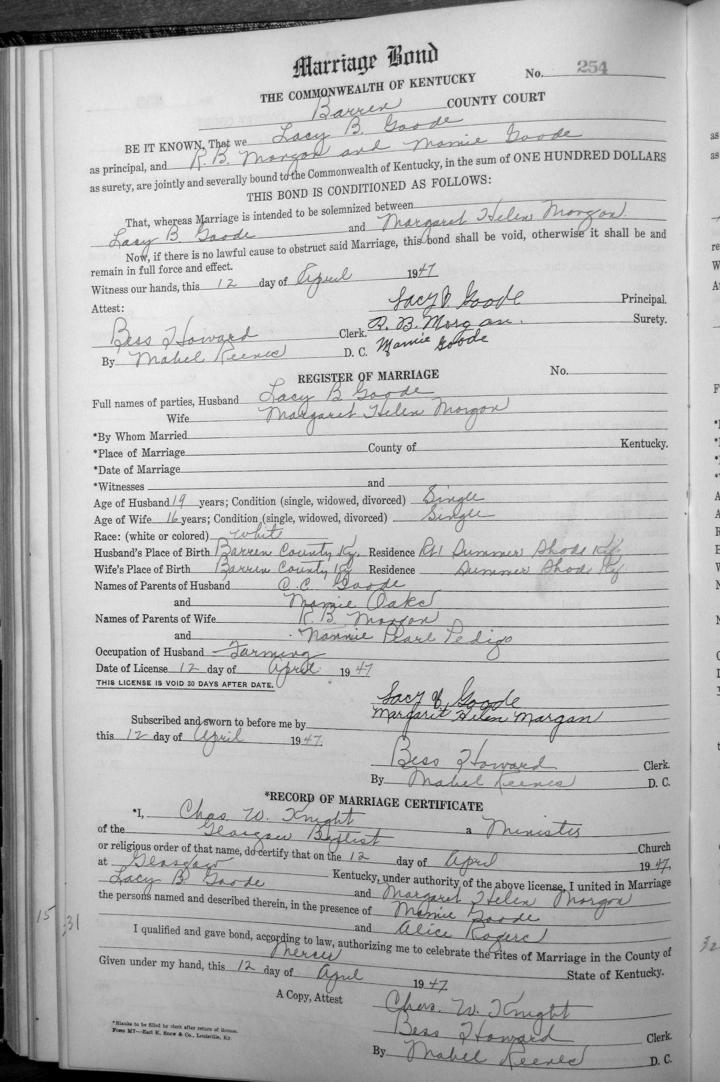 Marriage Bond
No. 254
THE COMMONWEALTH OF KENTUCKY
Barren COUNTY COURT
BE IT KNOWN, That we Lacy B. Goode
as principal, and R. B. Morgan and Mamie Goode
as surety, are jointly and severally bound to the Commonwealth of Kentucky, in the sum of ONE HUNDRED DOLLARS
THIS BOND IS CONDITIONED AS FOLLOWS:
That, whereas Marriage is intended to be solemnized between
Lacy B. Goode and Margaret Helen Morgan
Now, if there is no lawful cause to obstruct said Marriage, this bond shall be void, otherwise it shall be and
remain in full force and effect.
Witness our hands, this 12 day of April 1947
Attest: Lacy B Goode Principal.
Bess Howard Clerk. R. B. Morgan. Surety.
By Mabel Reeves D. C. Mamie Goode
REGISTER OF MARRIAGE No.
Full names of parties, Husband Lacy B Goode
Wife Margaret Helen Morgan
*By Whom Married
*Place of Marriage County of Kentucky.
*Date of Marriage
*Witnesses and
Age of Husband 19 years; Condition (single, widowed, divorced) Single
Age of Wife 16 years; Condition (single, widowed, divorced) Single
Race: (white or colored) White
Husband's Place of Birth Barren County Ky. Residence Rt 1 Summer Shade Ky.
Wife's Place of Birth Barren County Ky Residence Summer Shade Ky
Names of Parents of Husband C. C. Goode
and Mamie Oakes
Names of Parents of Wife R. B. Morgan
and Nannie Pearl Pedigo
Occupation of Husband Farming
Date of License 12 day of April 1947
THIS LICENSE IS VOID 30 DAYS AFTER DATE.
Lacy B Goode
Margarit Helen Margan
Subscribed and sworn to before me by
this 12 day of April 1947.
Bess Howard Clerk.
By Mabel Reeves D. C.
*RECORD OF MARRIAGE CERTIFICATE
*I, Chas. W. Knight a Minister
of the Glasgow Baptist Church
or religious order of that name, do certify that on the 12 day of April 1947,
at Glasgow Kentucky, under authority of the above license, I united in Marriage
Lacy B. Goode and Margaret Helen Morgan
the persons named and described therein, in the presence of Mamie Goode
and Alice Rogers
15 331
I qualified and gave bond, according to law, authorizing me to celebrate the rites of Marriage in the County of
Mercer State of Kentucky.
Given under my hand, this 12 day of April 1947
A Copy, Attest Chas. W. Knight
Bess Howard Clerk.
By Mabel Reeves D. C.
*Blanks to be filled by clerk after return of license.
Form M7—Earl K. Snow & Co., Louisville, Ky.